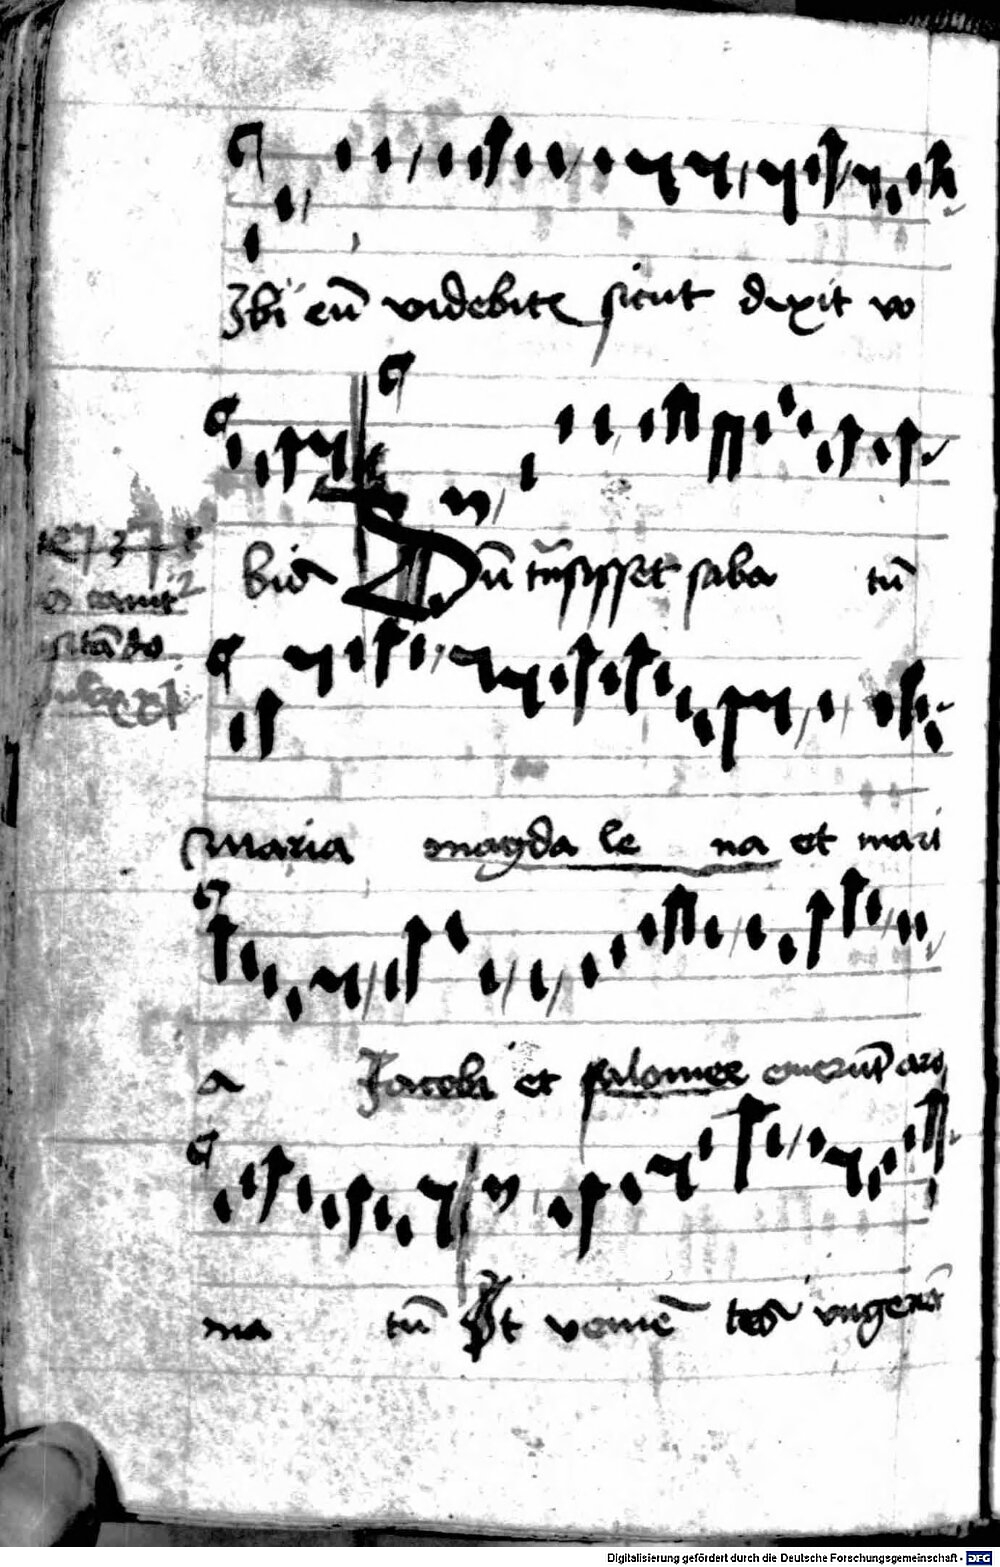 Ibi eū videbitis sicut dixit vo
bis Dū trāsisset saba tū
Maria magda le na et mari
a Jacobi et salomee emerūt aro
ma tū Ut venien tes ungerēt
Digitalisierung gefördert durch die Deutsche Forschungsgemeinschaft - DFG